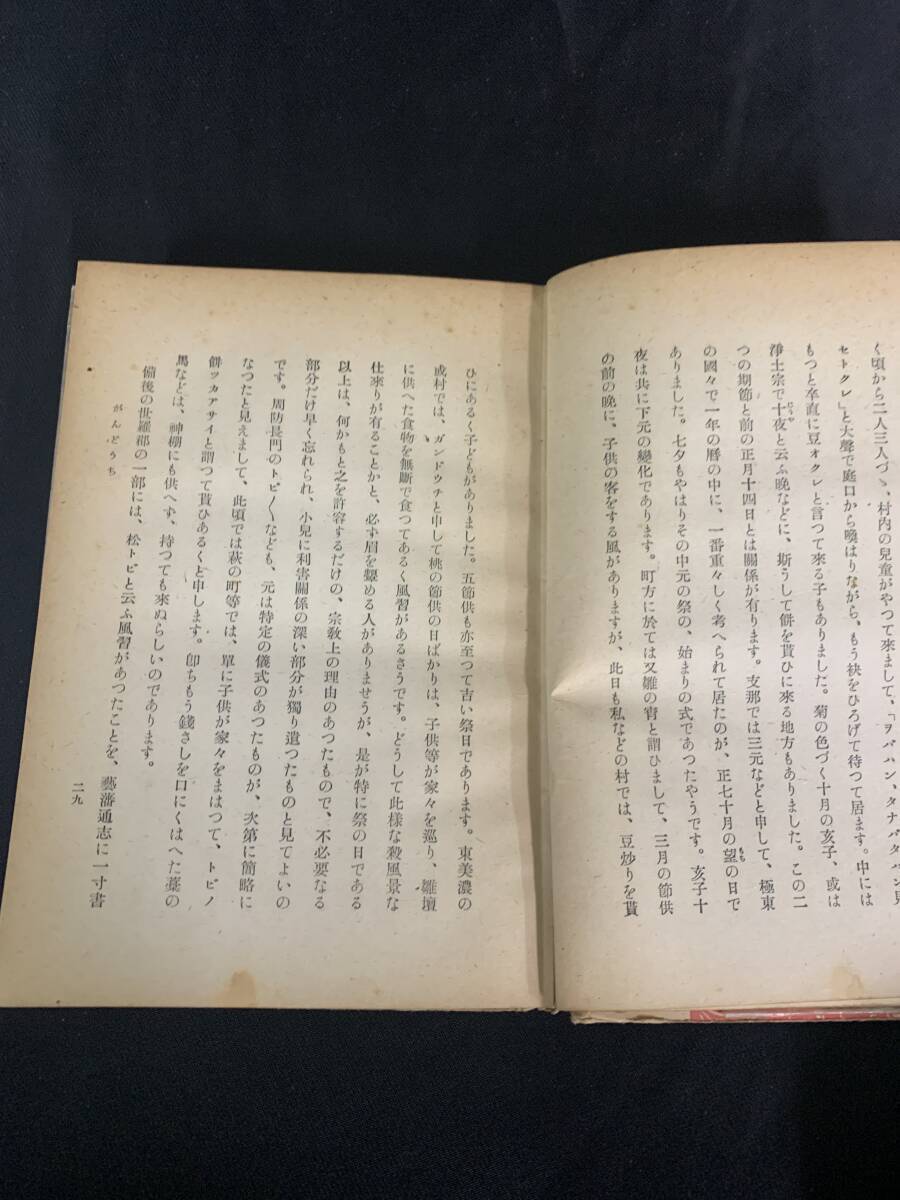 く頃から二人三人づゝ、村内の兒童がやつて來まして、「ヲバハン、タナバタバン見
セトクレ」と大聲で庭口から喚はりながら、もう袂をひろげて待つて居ます。中には
もつと卒直に豆オクレと言つて來る子もありました。菊の色づく十月の亥子、或は
淨土宗で十夜と云ふ晩などに、斯うして餅を貰ひに來る地方もありました。この二
つの期節と前の正月十四日とは關係が有ります。支那では三元などと申して、極東
の國々で一年の曆の中に、一番重々しく考へられて居たのが、正七十月の望の日で
ありました。七夕もやはりその中元の祭の、始まりの式であつたやうです。亥子十
夜は共に下元の變化であります。町方に於ては又雛の宵と謂ひまして、三月の節供
の前の晩に、子供の客をする風がありますが、此日も私などの村では、豆炒りを貰
ひにあるく子どもがありました。五節供も亦至つて古い祭日であります。東美濃の
或村では、ガンドウチと申して桃の節供の日ばかりは、子供等が家々を巡り、雛壇
に供へた食物を無斷で食つてあるく風習があるさうです。どうして此樣な殺風景な
仕來りが有ることかと、必ず眉を顰める人がありませうが、是が特に祭の日である
以上は、何かもと之を許容するだけの、宗敎上の理由のあつたもので、不必要なる
部分だけ早く忘れられ、小兒に利害關係の深い部分が獨り遺つたものと見てよいの
です。周防長門のトビ〳〵なども、元は特定の儀式のあつたものが、次第に簡略に
なつたと見えまして、此頃では萩の町等では、單に子供が家々をまはつて、トビノ
餅ツカアサイと謂つて貰ひあるくと申します。卽ちもう錢さしを口にくはへた藁の
馬などは、神棚にも供へず、持つても來ぬらしいのであります。
備後の世羅郡の一部には、松トビと云ふ風習があつたことを、藝藩通志に一寸書
がんどうち
二九